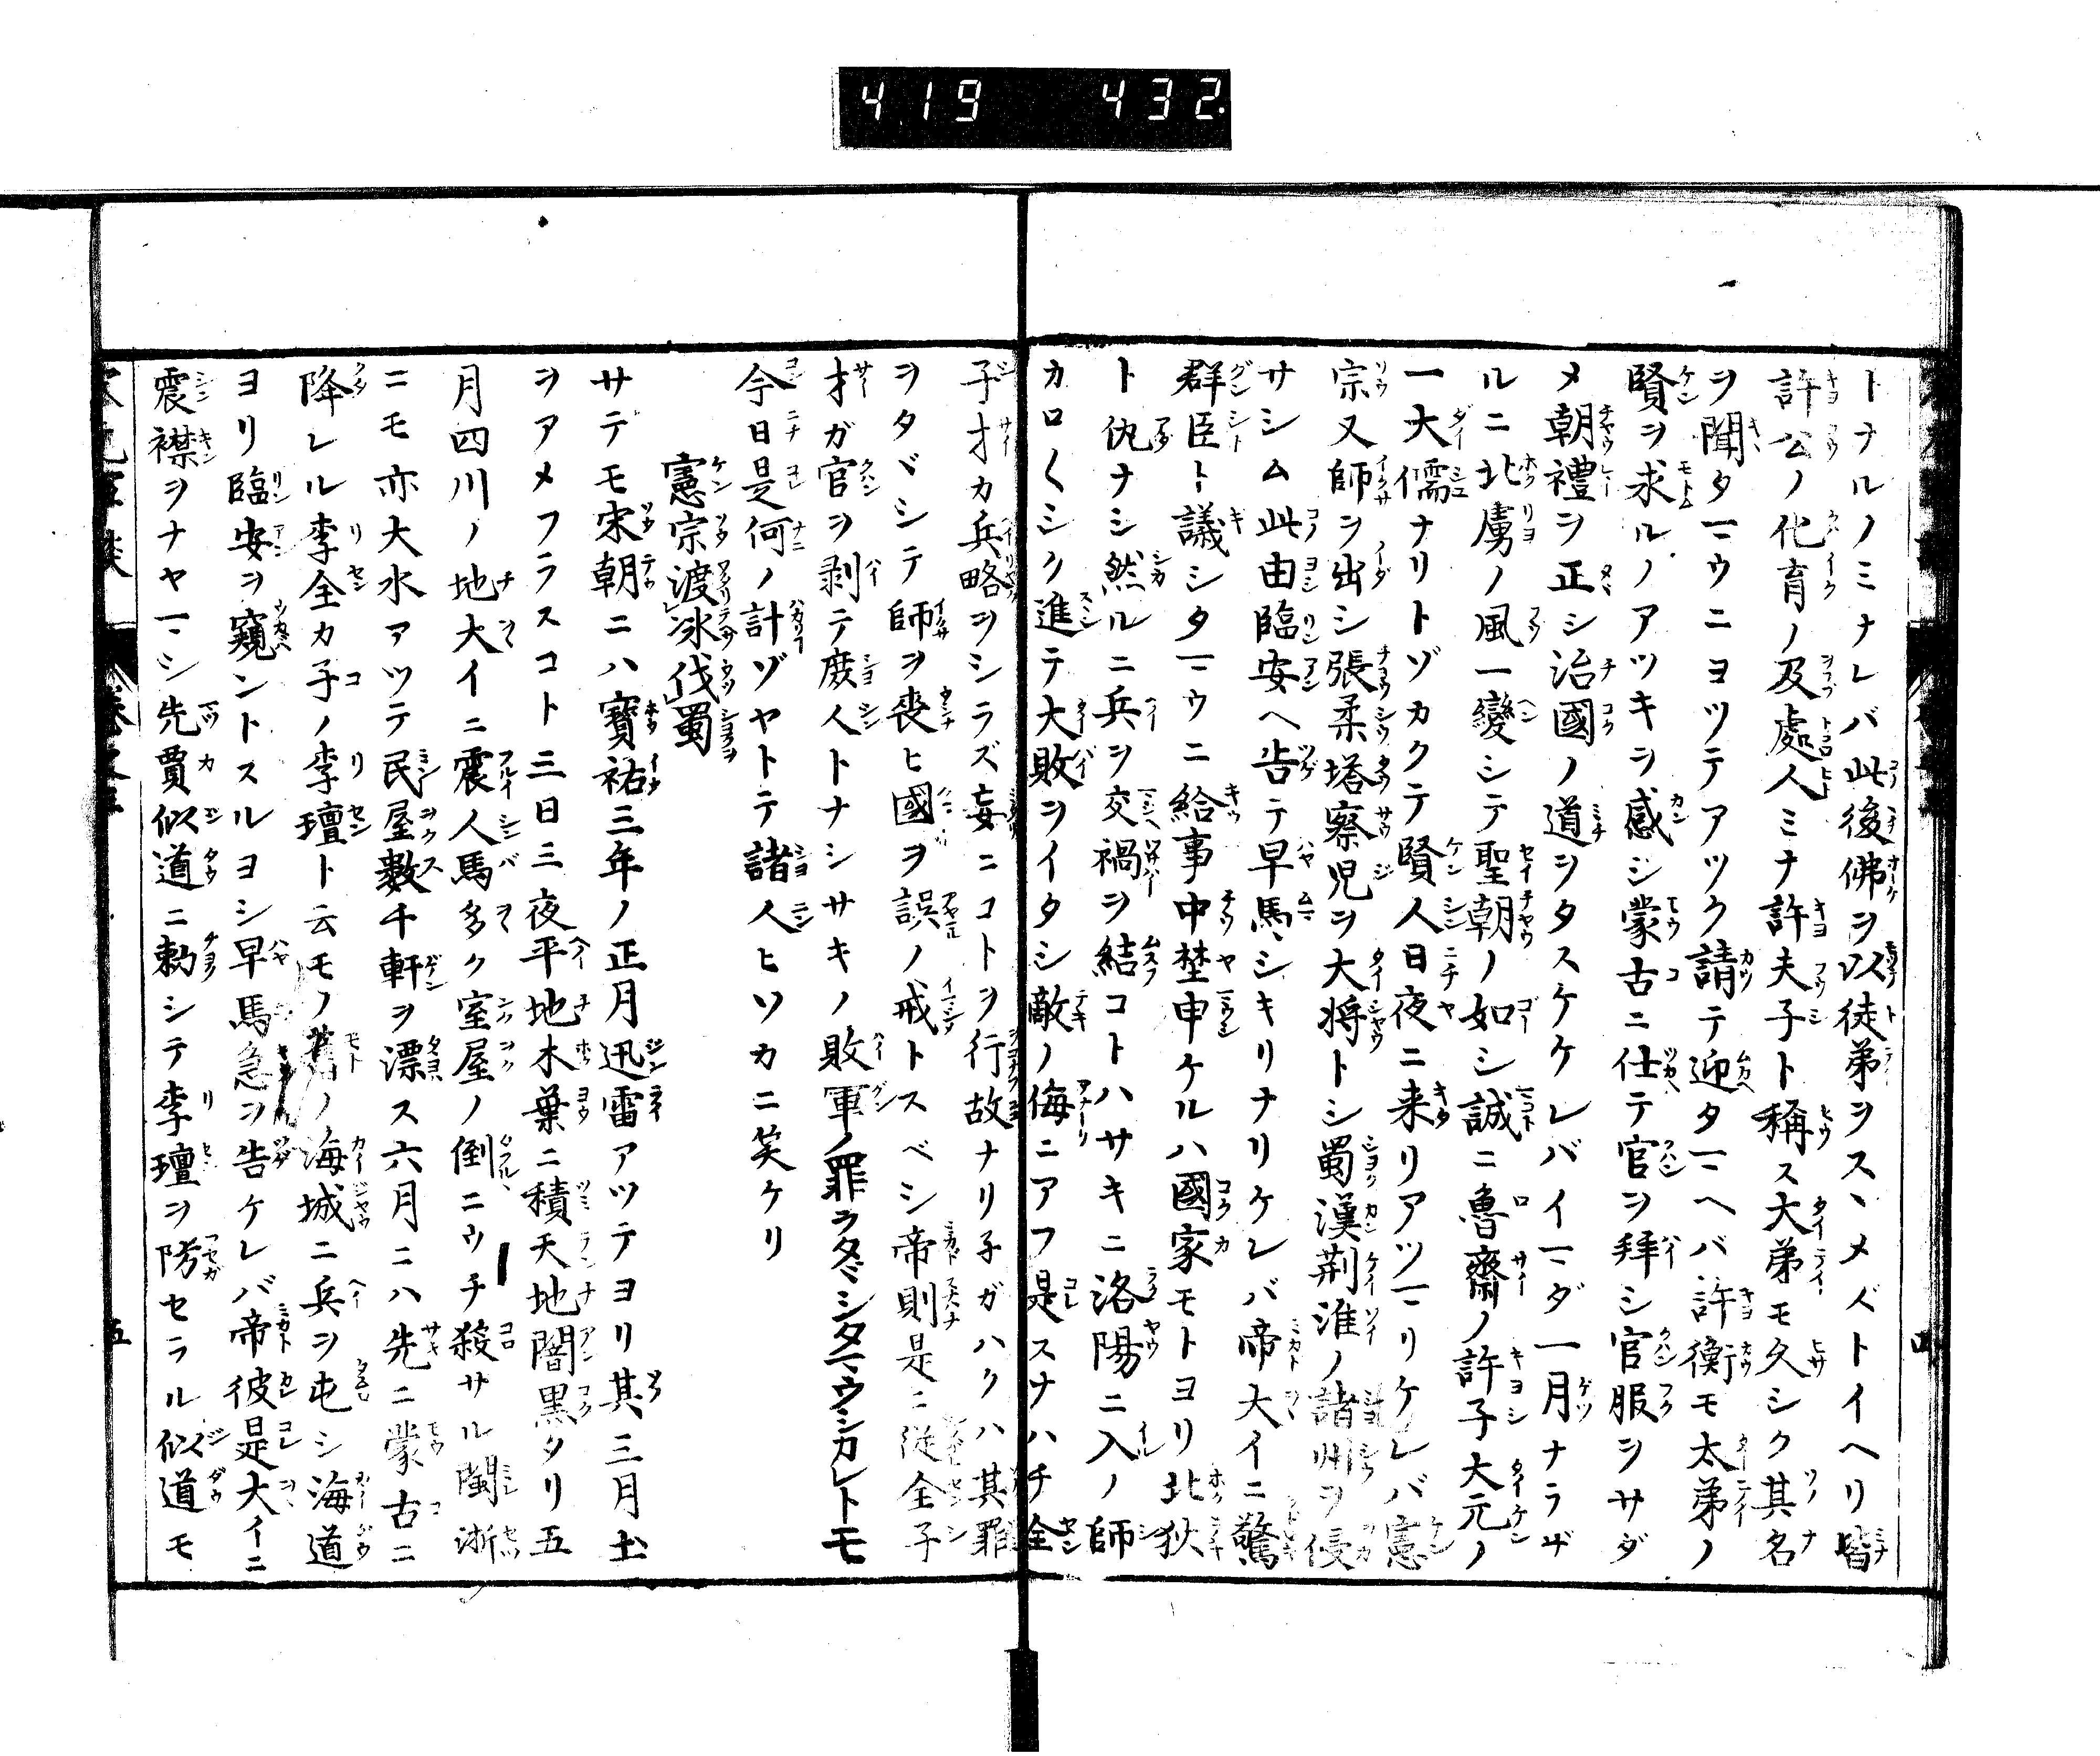 419 432
トナルノミナレバ此後佛ヲ以徒弟ヲスヽメズトイヘリ皆
許公ノ化育ノ及處人ミナ許夫子ト稱ス大弟モ久シク其名
ヲ聞タマウニヨツテアツク請テ迎タマヘバ許衡モ太弟ノ
賢ヲ求ルノアツキヲ感シ蒙古ニ仕テ官ヲ拜シ官服ヲサダ
メ朝禮ヲ正シ治國ノ道ヲタスケケレバイマダ一月ナラザ
ルニ北虜ノ風一變シテ聖朝ノ如シ誠ニ魯齋ノ許子大元ノ
一大儒ナリトゾカクテ賢人日夜ニ来リアツマリケレバ憲
宗又師ヲ出シ張柔塔察児ヲ大将トシ蜀漢荆淮ノ諸州ヲ侵
サシム此由臨安ヘ告テ早馬シキリナリケレバ帝大イニ驚
群臣ト議シタマウニ給事中埜申ケルハ國家モトヨリ北狄
ト仇ナシ然ルニ兵ヲ交禍ヲ結コトハサキニ洛陽ニ入ノ師
カロ〱シク進テ大敗ヲイタシ敵ノ侮ニアフ是スナハチ全
子才カ兵略ヲシラズ妄ニコトヲ行故ナリ子ガハクハ其罪
ヲタヾシテ師ヲ喪ヒ國ヲ誤ノ戒トスベシ帝則是ニ従全子
才ガ官ヲ剥テ庶人トナシサキノ敗軍ノ罪ヲタヾシタマウシカレトモ
今日是何ノ計ゾヤトテ諸人ヒソカニ笑ケリ
憲宗渡冰伐蜀
サデモ宋朝ニハ寶祐三年ノ正月迅雷アツテヨリ其三月土
ヲアメフラスコト三日三夜平地木葉ニ積天地闇黒タリ五
月四川ノ地大イニ震人馬多ク室屋ノ倒ニウチ殺サル閩浙
ニモ亦大水アツテ民屋數千軒ヲ漂ス六月ニハ先ニ蒙古ニ
降レル李全カ子ノ李璮ト云モノ舊ノ海城ニ兵ヲ屯シ海道
ヨリ臨安ヲ窺ントスルヨシ早馬急ヲ告ケレバ帝彼是大イニ
震襟ヲナヤマシ先賈似道ニ勅シテ李璮ヲ防セラル似道モ
五